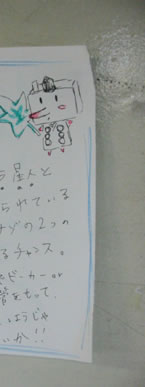 ラ星人と
られている
ナゾの2つの
るチャンス。
ビーカーor
管をもって、
しようじゃ
いか!!